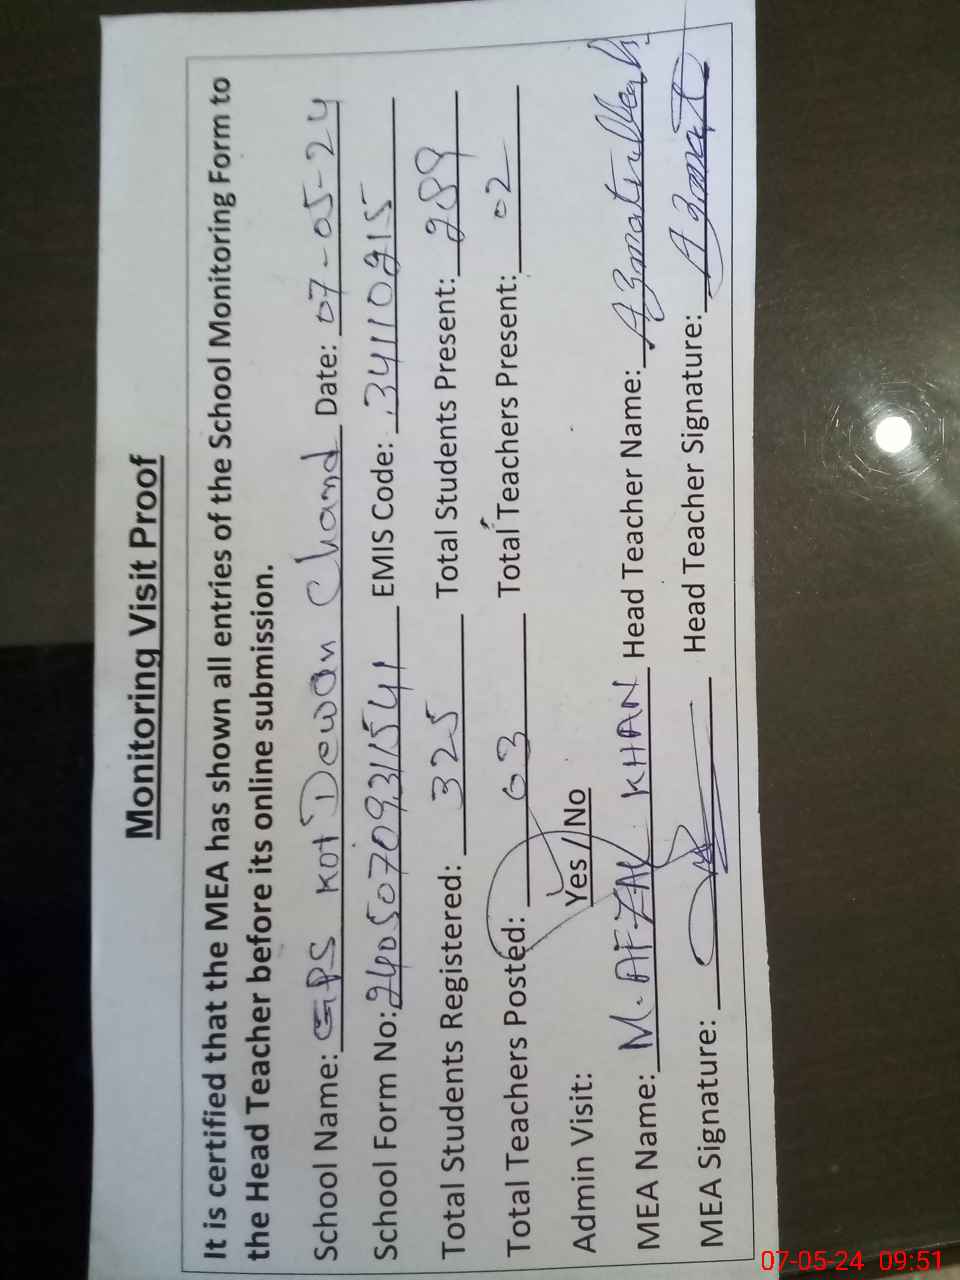 Monitoring Visit Proof
It is certified that the MEA has shown all entries of the School Monitoring Form to
the Head Teacher before its online submission.
School Name: GPS Kot Dewan Chand Date: 07-05-24
School Form No: 2405070931541 EMIS Code: 34110215
Total Students Registered: 325 Total Students Present: 289
Total Teachers Posted: 03 Total Teachers Present: 02
Admin Visit: Yes / No
MEA Name: M. AFZAL KHAN Head Teacher Name: Azmatullah
MEA Signature: Head Teacher Signature: Azmat
07-05-24 09:51